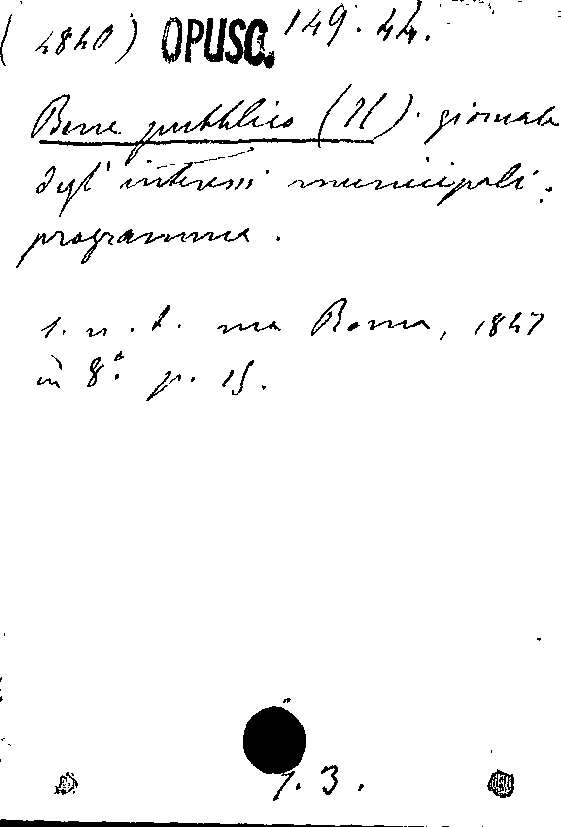 (4840) OPUSC. 149. 44.
Bene pubblico (Il). giornale
degl' interessi municipali.
programma.
s. n. t. ma Roma, 1847
in 8.° p. 15.
1. 3.